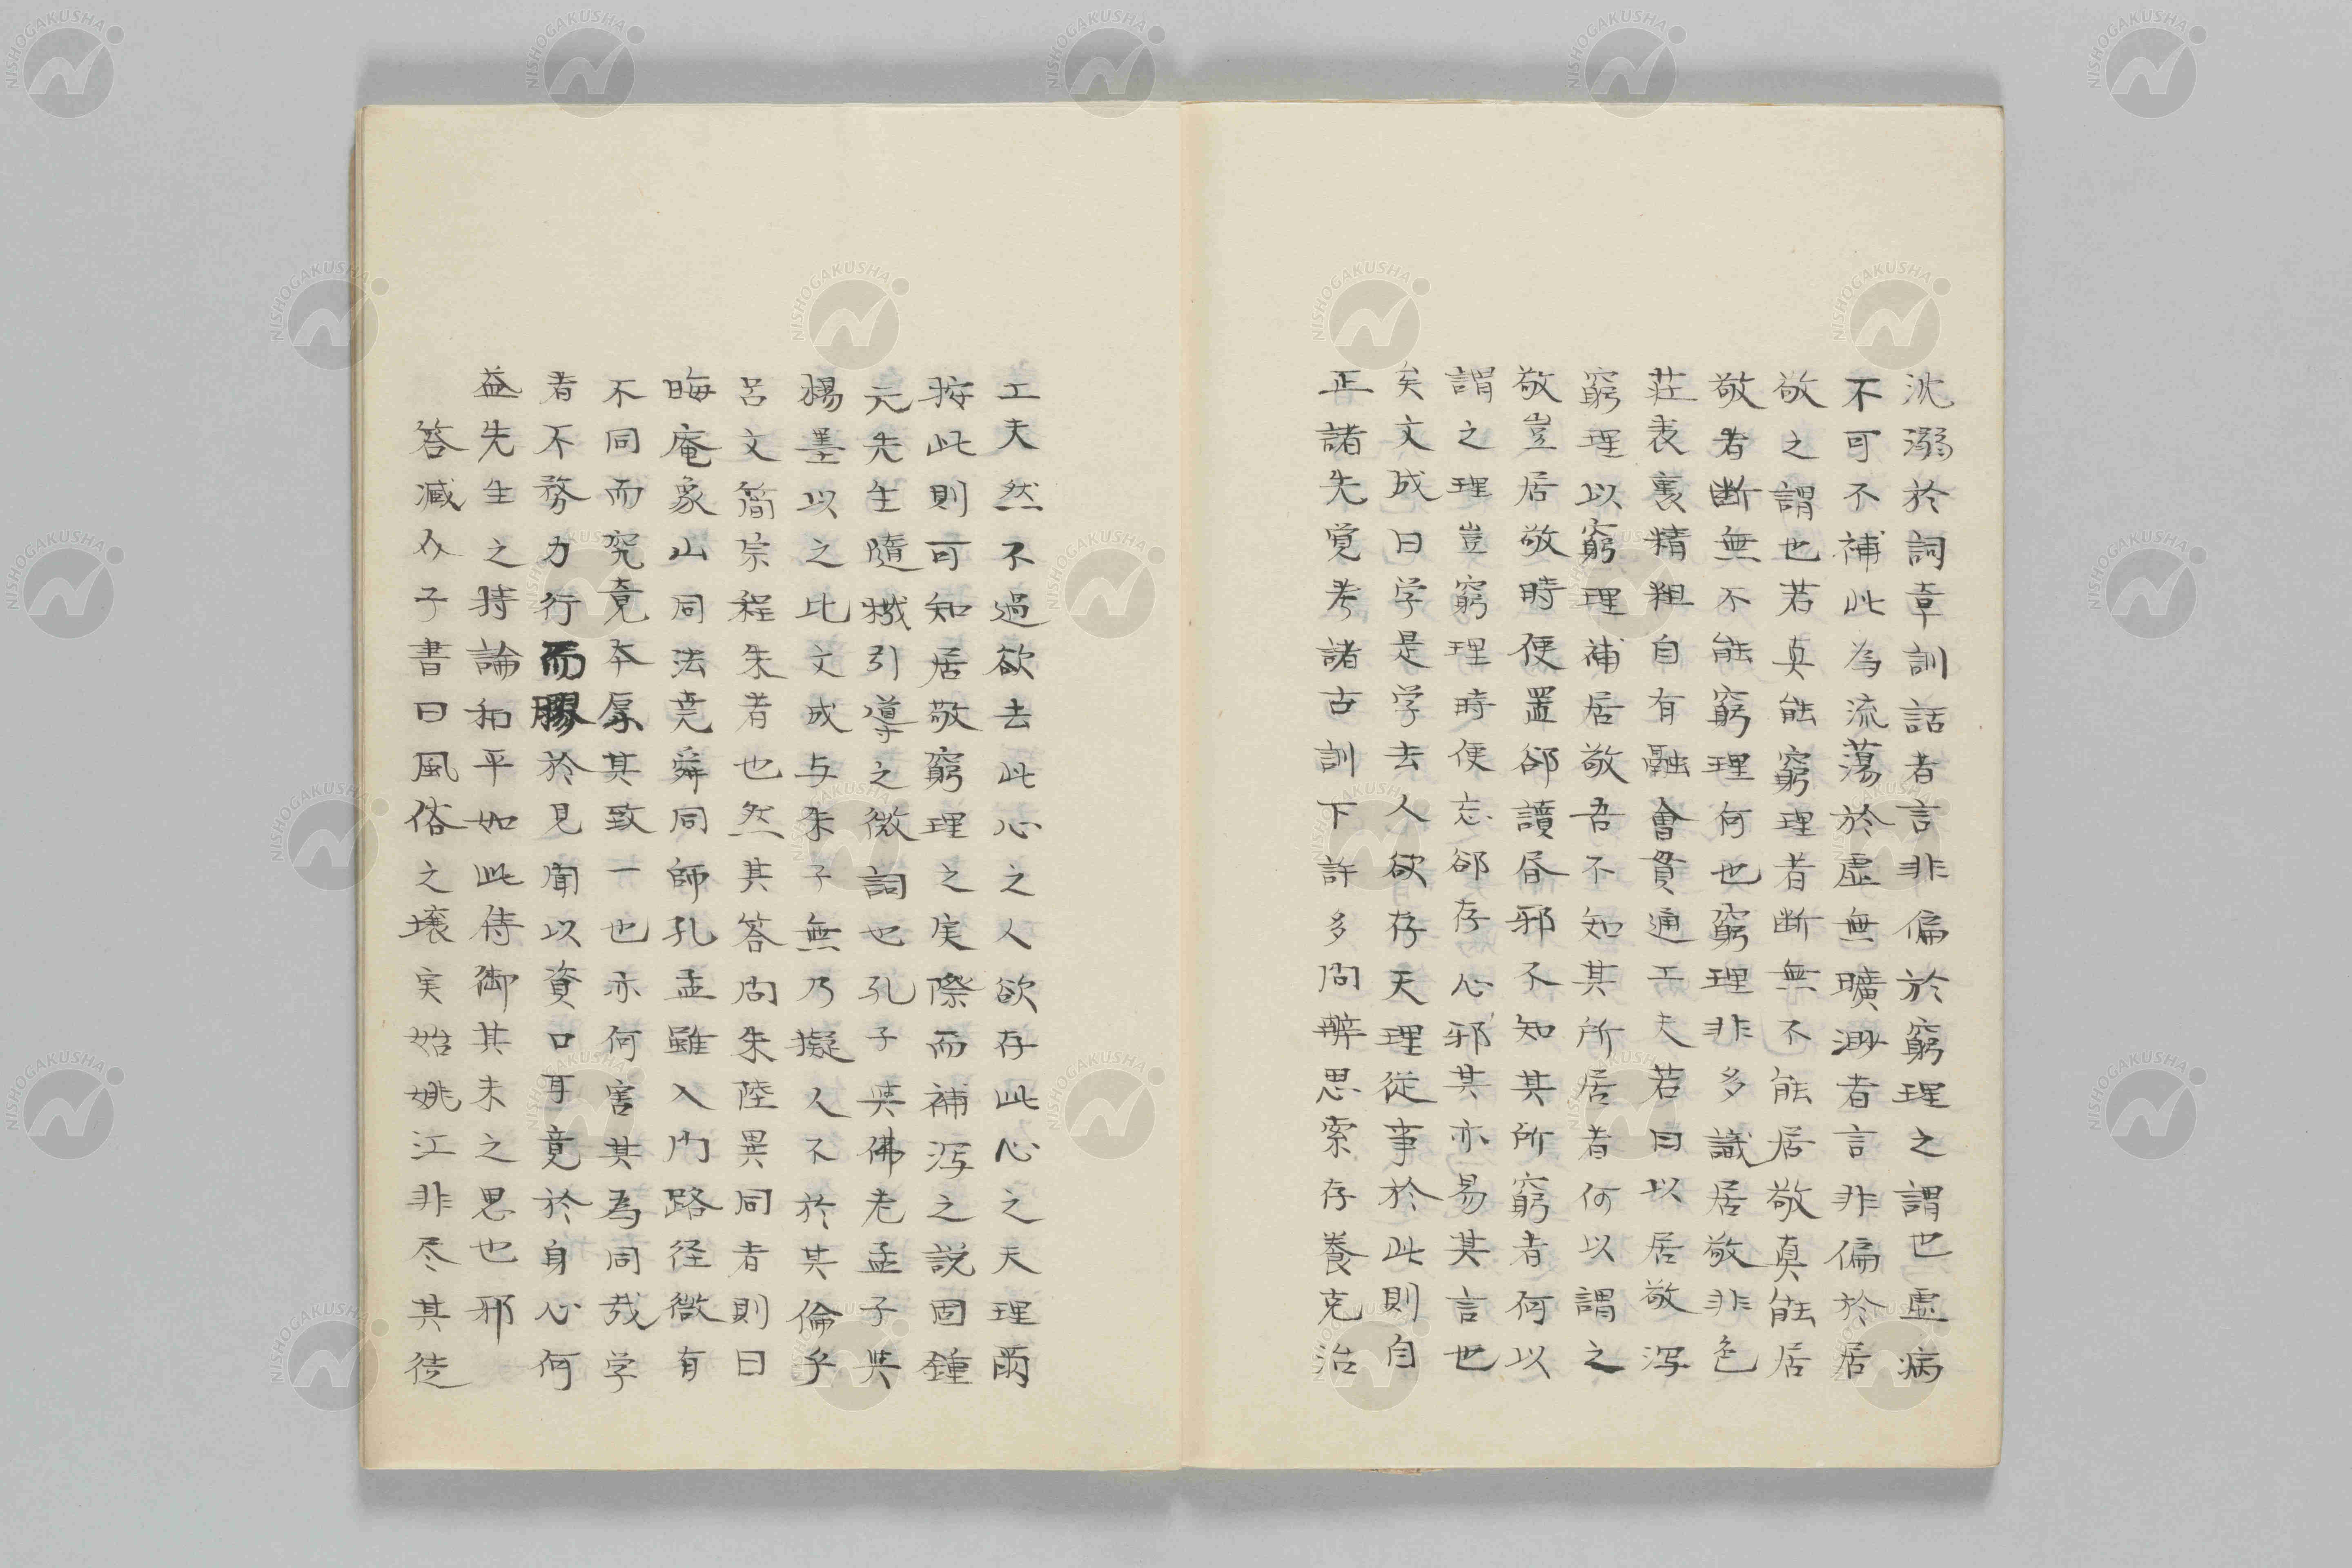 沈溺於詞章訓話者言非偏於窮理之謂也虚病
不可不補此為流蕩於虚無曠渺者言非偏於居
敬之謂也若真能窮理者断無不能居敬真能居
敬者断無不能窮理何也窮理非多識居敬非色
荘表裏精粗自有融會貫通工夫若曰以居敬瀉
窮理以窮理補居敬吾不知其所居者何以謂之
敬豈居敬時便置郤讀昏邪不知其所窮者何以
謂之理豈窮理時便忘郤存心邪其亦易其言也
矣文成曰学是学去人欲存天理從事於此則自
正諸先覚考諸古訓下許多問辨思索存養克治
工夫然不過欲去此心之人欲存此心之天理爾
按此則可知居敬窮理之実際而補瀉之説固鍾
元先生隨機引導之微詞也孔子與佛老孟子與
楊墨以之比文成与朱子無乃擬人不於其倫乎
呂文簡宗程朱者也然其答问朱陸異同者則曰
晦庵象山同法尭舜同師孔孟雖入门路径微有
不同而究竟本原其致一也亦何害其為同哉学
者不務力行而膠於見聞以資口耳竟於身心何
益先生之持論和平如此侍御其未之思也邪
答减介子書曰風俗之壊実始姚江非尽其徒